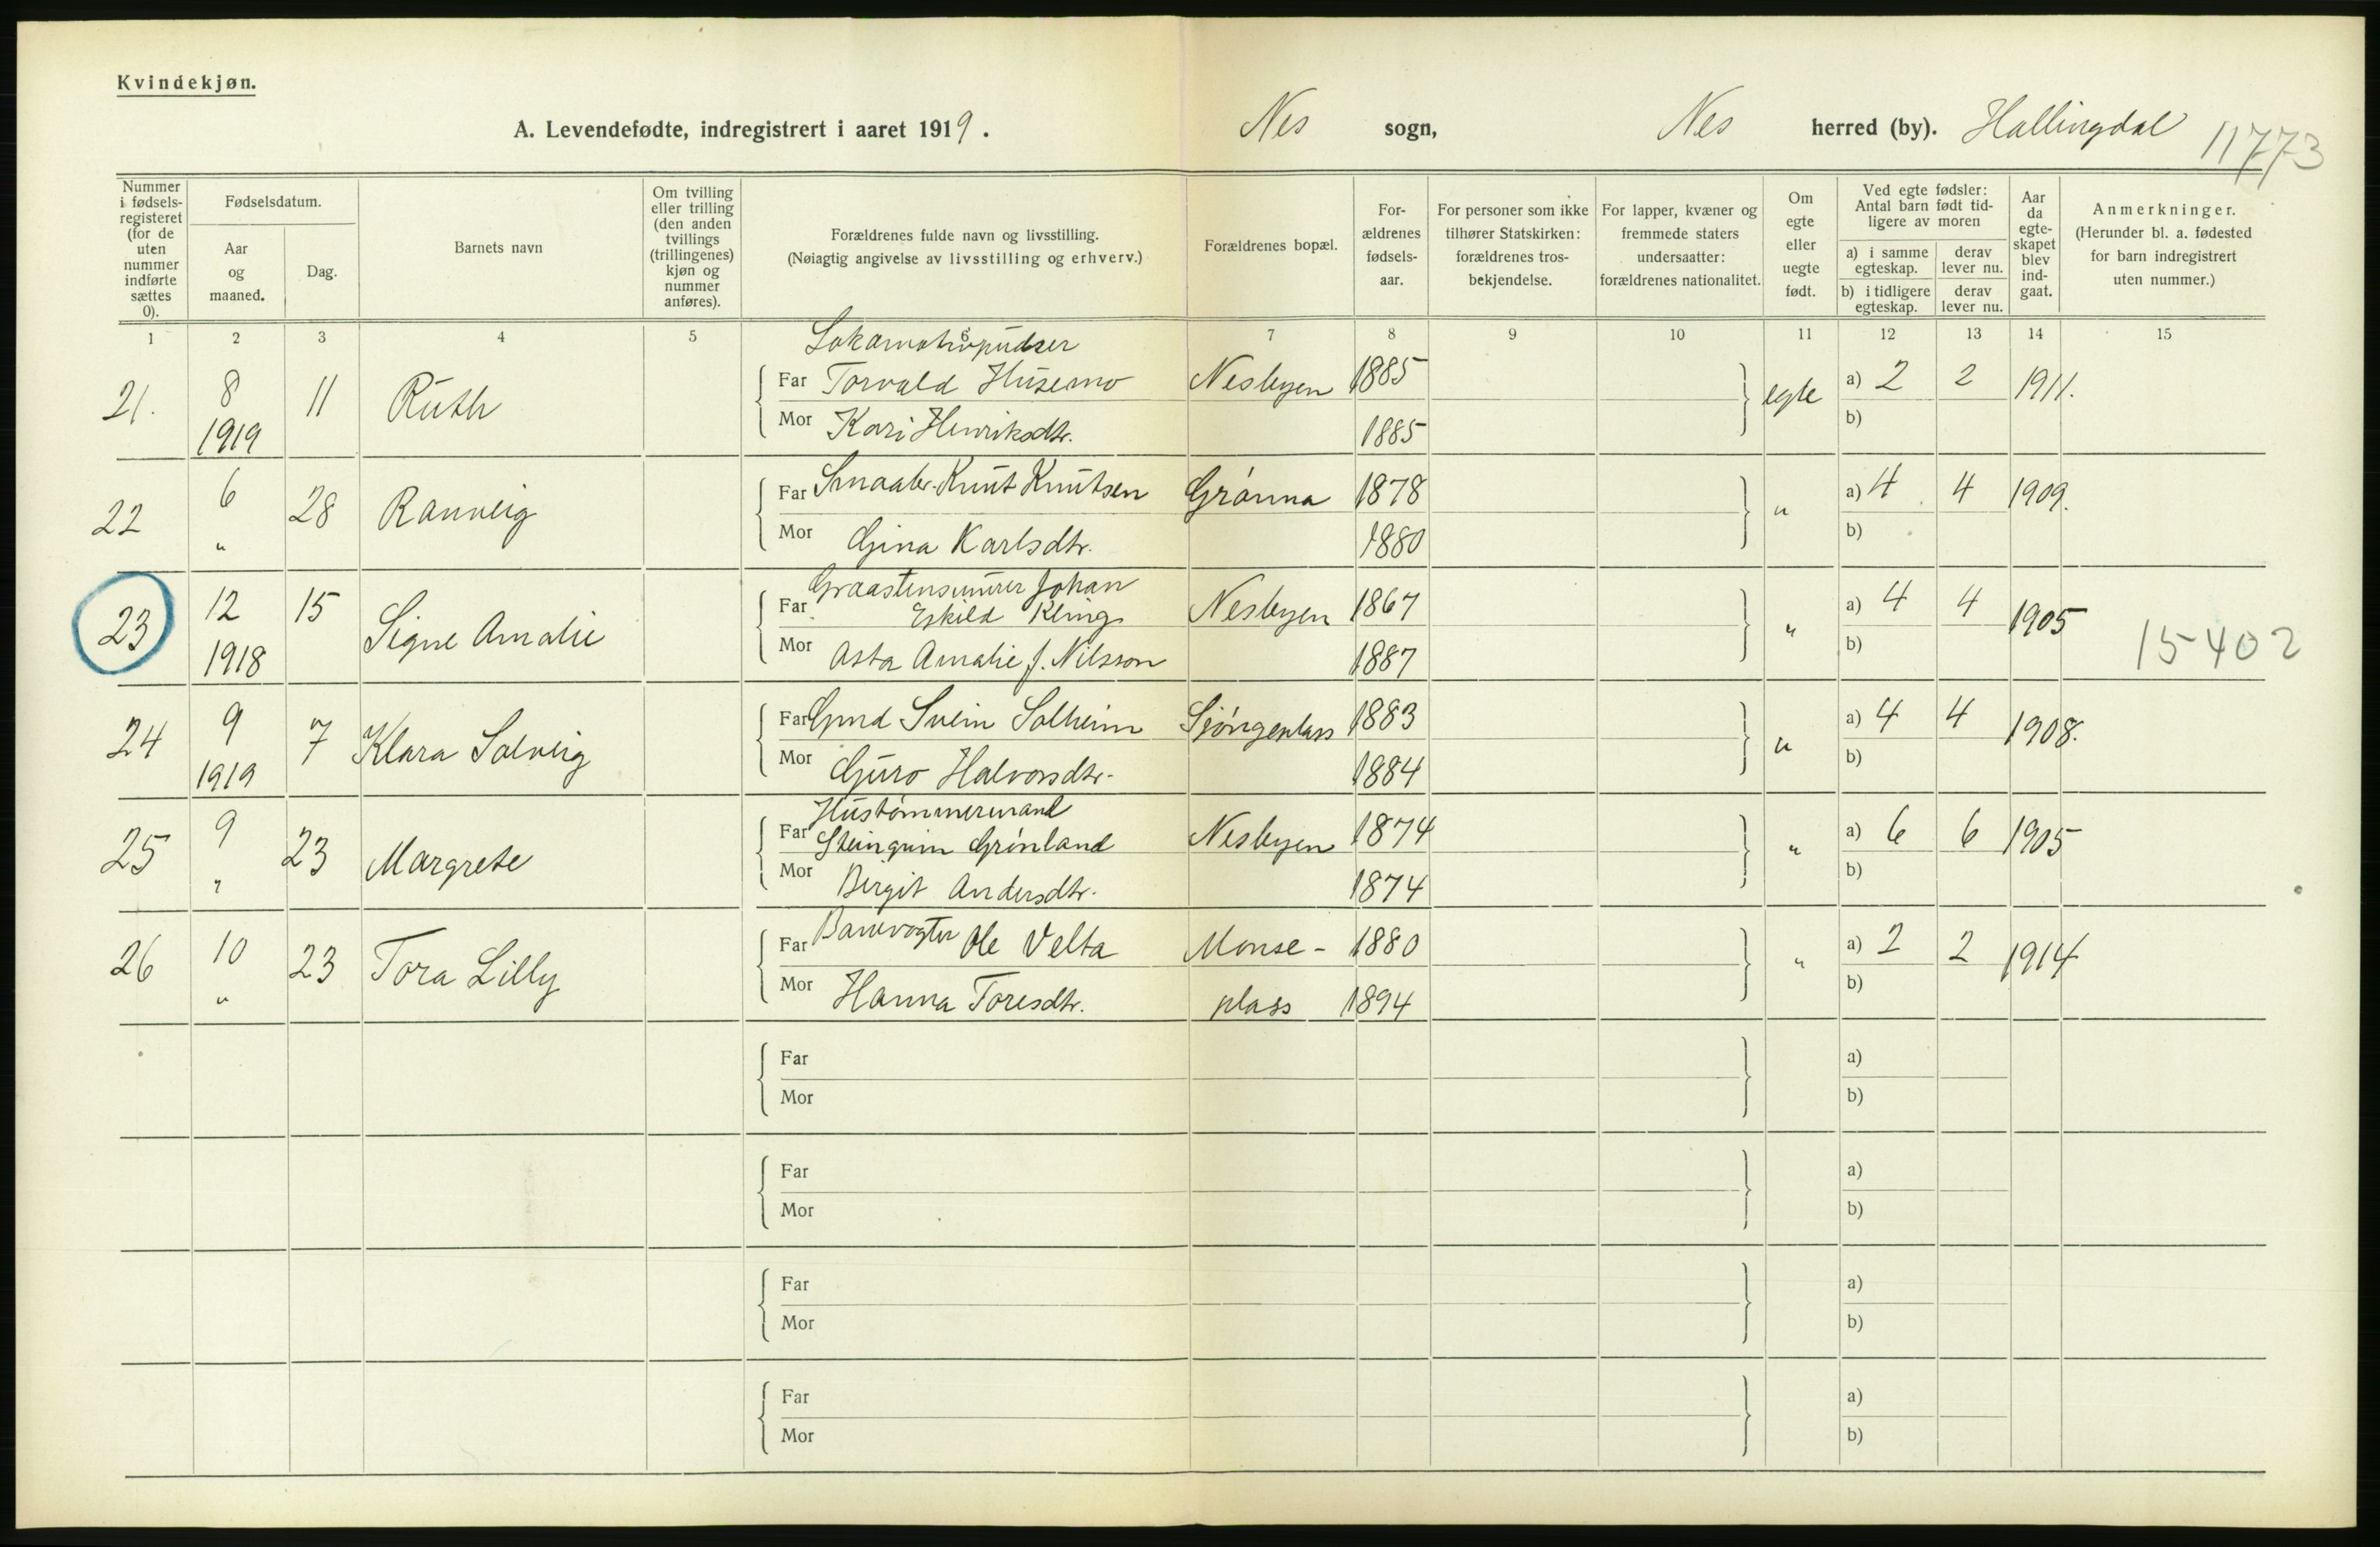 Kvindekjøn.
A. Levendefødte, indregistrert i aaret 1919.
Nes sogn, Nes herred (by). Hallingdal
11773
Nummer i fødsels-registeret (for de uten nummer indførte sættes 0).
Fødselsdatum.
Aar og maaned.
Dag.
Barnets navn
Om tvilling eller trilling (den anden tvillings (trillingenes) kjøn og nummer anføres).
Forældrenes fulde navn og livsstilling.
(Nøiagtig angivelse av livsstilling og erhverv.)
Forældrenes bopæl.
For-ældrenes fødsels-aar.
For personer som ikke tilhører Statskirken: forældrenes tros-bekjendelse.
For lapper, kvæner og fremmede staters undersaatter: forældrenes nationalitet.
Om egte eller uegte født.
Ved egte fødsler: Antal barn født tid-ligere av moren
a) i samme egteskap. derav lever nu.
b) i tidligere egteskap. derav lever nu.
Aar da egte-skapet blev ind-gaat.
Anmerkninger.
(Herunder bl. a. fødested for barn indregistrert uten nummer.)
1 2 3 4 5 6 7 8 9 10 11 12 13 14 15
Lokomotivpudser
21. 8 11 Ruth Far Torvald Husemo Nesbyen 1885 egte a) 2 2 1911.
1919 Mor Kari Henriksdtr. 1885 b)
22 6 28 Rannveig Far Smaabr. Knut Knutsen Grønna 1878 " a) 4 4 1909.
" Mor Gina Karlsdtr. 1880 b)
Graastensmurer Johan
23 12 15 Signe Amalie Far Eskild Kling Nesbyen 1867 " a) 4 4 1905 15402
1918 Mor Asta Amalie f. Nilsson 1887 b)
24 9 7 Klara Solveig Far Gmd Svein Solheim 1883 " a) 4 4 1908.
1919 Mor Guro Halvorsdtr. 1884 b)
Hustømmermand
25 9 23 Margrete Far Steingrim Grønland Nesbyen 1874 " a) 6 6 1905
" Mor Birgit Andersdtr. 1874 b)
26 10 23 Tora Lilly Far Banevogter Ole Velta Monse- 1880 " a) 2 2 1914
" Mor Hanna Toresdtr. plass 1894 b)
Far a)
Mor b)
Far a)
Mor b)
Far a)
Mor b)
Far a)
Mor b)